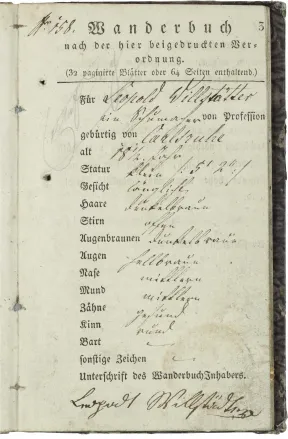 No 158.
Wanderbuch 3
nach der hier beigedruckten Ver=
ordnung.
(32 paginirte Blätter oder 64 Seiten enthaltend.)
Für Leopold Willstätter
ein Schumacher von Profession
gebürtig von Carlsruhe
alt 18 1/2 Jahr
Statur klein 5' 2"
Gesicht länglicht
Haare dunkelbraun
Stirn offen
Augenbraunen dunkelbraun
Augen hellbraun
Nase mittlern
Mund mittlern
Zähne gesund
Kinn rund
Bart -
sonstige Zeichen -
Unterschrift des WanderbuchInhabers.
Leopold Willstädter